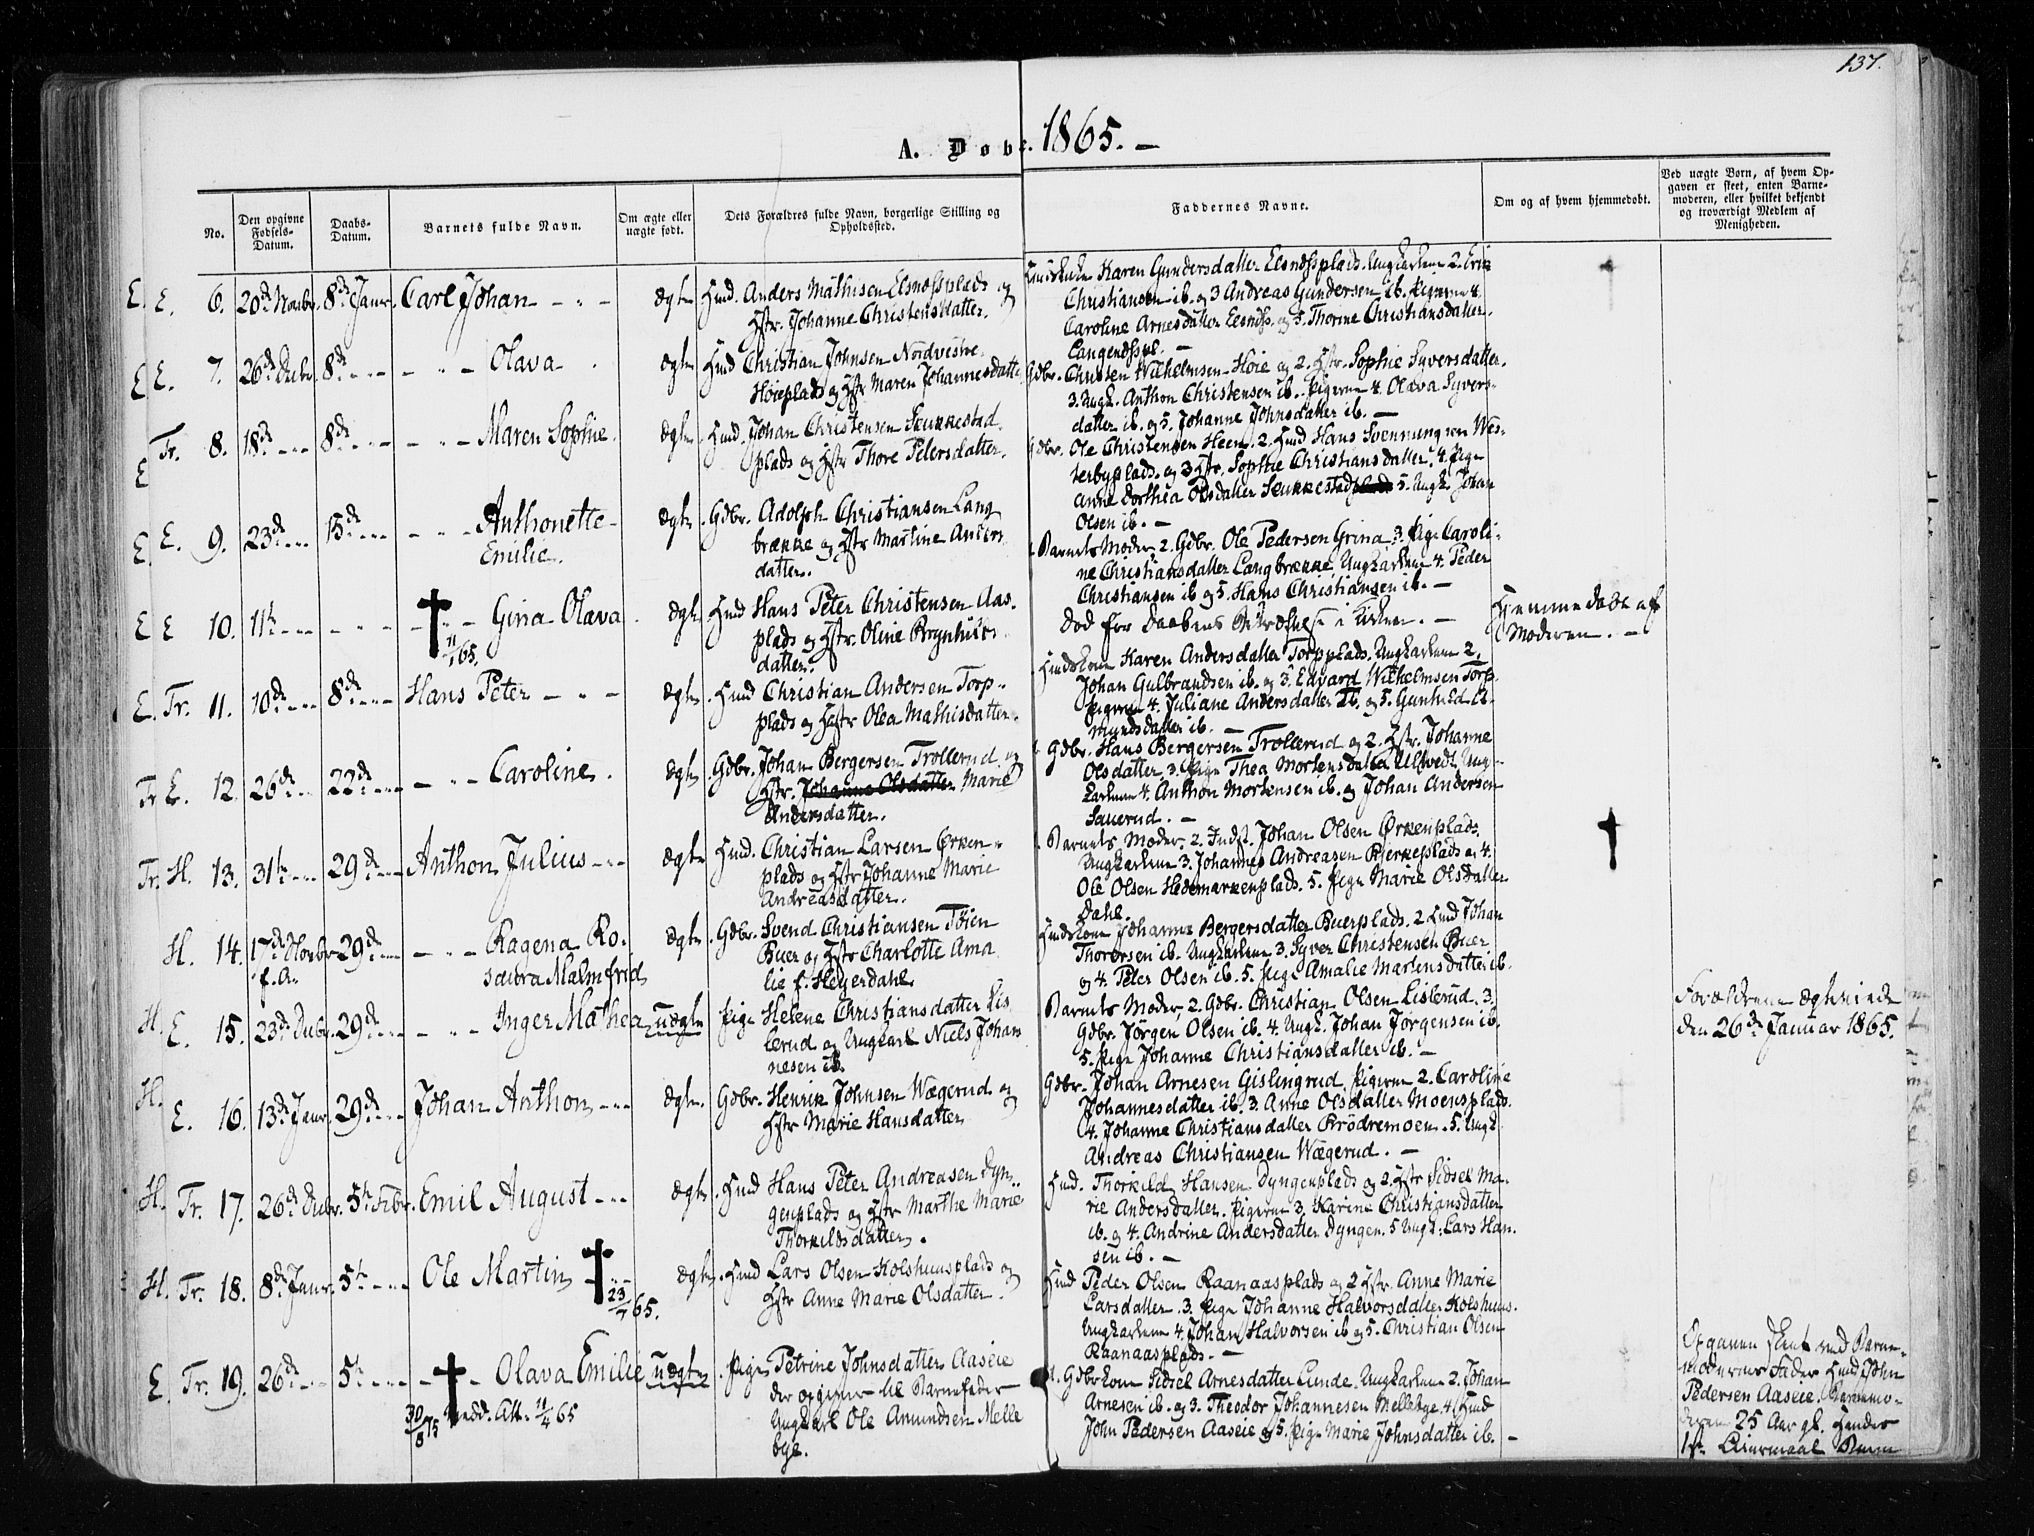 137.
A. Døbe. 1865. —
No.
Den opgivne Fødsels-Datum.
Daabs-Datum.
Barnets fulde Navn.
Om ægte eller uægte født.
Dets Forældres fulde Navn, borgerlige Stilling og Opholdssted.
Faddernes Navne.
Om og af hvem hjemmedøbt.
Ved uægte Børn, af hvem Opgaven er skeet, enten Barnemoderen, eller hvilket bekjendt og troværdigt Medlem af Menigheden.
E. E. 6. 20de Novbr. 8de Janr. Carl Johan ægte Hmd. Anders Mathisen Elsnessplads og
Hstr. Johanne Christensdatter.
Karen Gundersdatter Elsnessplads. Ungkarlene 2. Erik
Christiansen ib. og 3 Andreas Gundersen ib. Pigerne 4.
Caroline Arnesdatter og 5. Thorine Christiansdatter
E E. 7. 26de Decbr. 8de Olava ægte Hmd Christian Johnsen Nordvestre
Høieplads og Hstr Maren Johannesdatter
Gdbr. Christen Wilhelmsen Høie og 2. Hstr. Sophie Syversdatter.
3. Ungk. Anthon Christensen ib. Pigerne 4. Olava Syvers-
datter ib. og 5. Johanne Johnsdatter ib. —
E Tr. 8. 18de 8de Maren Sophie. ægte Hmd. Johan Christensen Skukkestad
plads og Hstr Thore Petersdatter.
Gdbr. Ole Christensen Heen. 2. Hmd Hans Svenningsen Wes-
terbyplads. og 3 Hstr. Sophie Christiansdatter. 4. Pige
Anne Dorthea Olsdatter Skukkestad 5. Ungk. Johan
Olsen ib. —
E. E. 9. 23de 15de Anthonette
Emilie. ægte Gdbr. Adolph Christiansen Lang
brække og Hstr Martine Anders
datter.
Barnets Moder, 2. Gdbr. Ole Pedersen Grina. 3. Pige Caroli-
ne Christiansdatter Langbrække. Ungkarlene 4. Peder
Christiansen ib og 5. Hans Christiansen ib. —
E E 10. 11te Gina Olava
11/1 65. ægte Hmd Hans Peter Christensen Aas-
plads og Hstr. Oline Brynhilds
datter.
Død før Daabens Stadfæstelse i Kirken. —
Hjemmedøbt af
Moderen. —
E. Tr. 11. 10de 8de Hans Peter ægte Hmd Christian Andersen Torp-
plads og Hstr Olea Mathisdatter.
Karen Andersdatter Torpplads. Ungkarlene 2.
Johan Gulbrandsen ib. og 3. Edvard Wilhelmsen Torp.
Pigerne 4. Juliane Andersdatter ib. og 5. Gunhild A-
mundsdatter ib. —
Tr E. 12. 26de 22de Caroline. ægte Gdbr. Johan Bergersen Trollerud og
Hstr. Johanne Olsdatter Marie
Andersdatter.
Gdbr. Hans Bergersen Trollerud og 2. Hstr. Johanne
Olsdatter. 3. Pige Thea Mortensdatter Ullevedt. Ung-
karlene 4. Anthon Mortensen ib. og Johan Andersen
Sauerud. —
Tr. H. 13. 31te 29de Anthon Julius ægte Hmd. Christian Larsen Ørken-
plads og Hstr Johanne Marie
Andreasdatter.
Barnets Moder, 2. Indst. Johan Olsen Ørkenplads.
Ungkarlene 3. Johannes Andreasen Bjerkesplads og 4.
Ole Olsen Hedemarkenplads. 5. Pige Marie Olsdatter
Dahl.
H. 14. 17de Novbr
f. A. 29de Ragena Ro-
saura Malmfrid ægte Gdbr. Svend Christiansen Tøien
Buer og Hstr Charlotte Ama
lie f. Heyerdahl.
Johanne Bergersdatter Buerplads. 2 Hmd Johan
Thoresen ib. Ungkarlene 3. Syver Christensen Buer
og 4. Peter Olsen ib. 5. Pige Amalie Martensdatter ib.
H. E. 15. 23de Decbr. 29de Inger Mathea uægte Pige Helene Christiansdatter Lis
lerud og Ungkarl Niels Johan
nesen ib.
Barnets Moder, 2. Gdbr. Christian Olsen Lislerud. 3.
Gdbr. Jørgen Olsen ib. 4. Ungk. Johan Jørgensen ib.
5. Pige Johanne Christiansdatter ib. —
Forældrene ægteviede
den 26de Januar 1865.
H. E. 16. 13de Janr. 29de Johan Anthon ægte Gdbr. Henrik Johnsen Wægerud og
Hstr Marie Hansdatter
Gdbr. Johan Arnesen Gislingrud. Pigerne 2. Caroline
Johannesdatter ib. 3. Anne Olsdatter Moensplads.
4. Johanne Christiansdatter Krødremoen. 5. Ungk
Andreas Christiansen Wægerud. —
H. Tr. 17. 26de Decbr. 5te Febr. Emil August ægte Hmd Hans Peter Andreasen Dyn-
genplads og Hstr Marthe Marie
Thorkildsdatter.
Hmd. Thorkild Hansen Dyngenplads og 2. Hstr Sidsel Ma-
rie Andersdatter. Pigerne 3. Karine Christiansdatter
ib. og 4. Andrine Andersdatter Dyngen. 5 Ungk. Lars Han-
sen ib. —
H. Tr. 18. 8de Janr. 5te Ole Martin
23/7 65. ægte Hmd Lars Olsen Kolshuusplads og
Hstr Anne Marie Olsdatter.
Hmd Peder Olsen Raanaasplads og 2 Hstr. Anne Marie
Larsdatter. 3. Pige Johanne Halvorsdatter Kolshuus.
Ungkarlene 4. Johan Halvorsen ib og 5. Christian Olsen
Raanaasplads. —
E. Tr. 19. 26de 5te Olava Emilie
30/8 75 Medd. Att. 11/4 65 uægte Pige Petrine Johnsdatter Aaseie
der opgiver til Barnefader
Ungkarl Ole Amundsen Melle
bye.
1. Gdbrkone Sidsel Arnesdatter Lunde. Ungkarlene 2. Johan
Arnesen ib. og 3. Theodor Johannesen Mellebye. 4. Hmd
John Pedersen Aaseie og 5. Pige Marie Johnsdatter ib. —
Opgaven skeet ved Barne-
moderens Fader Hmd John
Pedersen Aaseie. Barnemo-
deren 25 Aar gl. Hendes
1ste Leiermaal